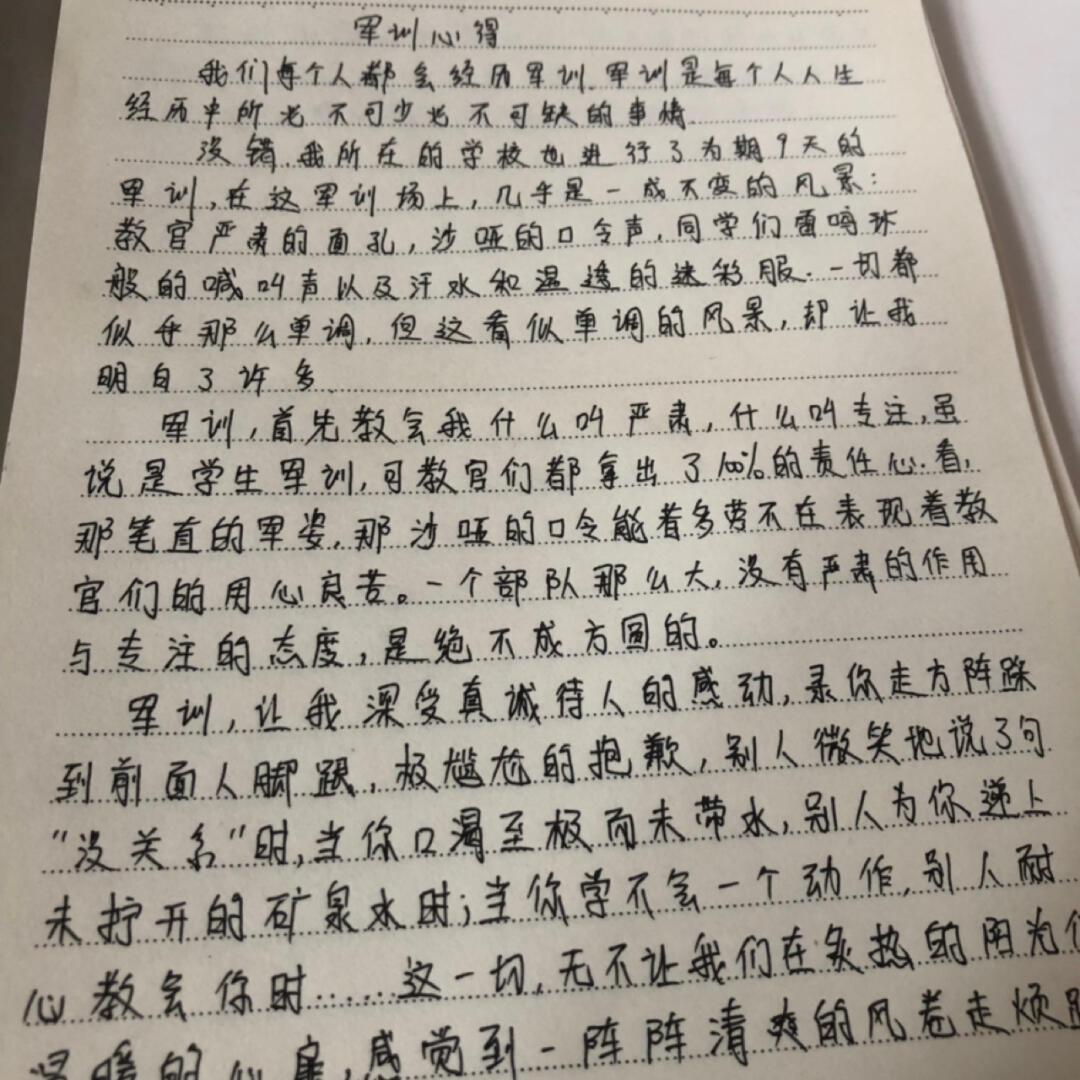 军训心得
我们每个人都会经历军训.军训是每个人人生
经历中所必不可少必不可缺的事情.
没错.我所在的学校也进行了为期9天的
军训,在这军训场上,几乎是一成不变的风景:
教官严肃的面孔,沙哑的口令声,同学们雷鸣
般的喊叫声以及汗水和湿透的迷彩服.一切都
似乎那么单调,但这看似单调的风景,却让我
明白了许多.
军训,首先教会我什么叫严肃,什么叫专注,虽
说是学生军训,可教官们都拿出了100%的责任心.看,
那笔直的军姿.那沙哑的口令能着多萝不在表现着教
官们的用心良苦。一个部队那么大,没有严肃的作用
与专注的态度,是绝不成方圆的。
军训,让我深受真诚待人的感动,录你走方阵踩
到前面人脚踝,极尴尬的抱歉,别人微笑地说了句
"没关系"时,当你口渴至极而未带水,别人为你递上
未拧开的矿泉水时;当你学不会一个动作,别人耐
心教会你时.....这一切,无不让我们在炙热的阳光
温暖的心房,感觉到一阵阵清爽的风卷走烦